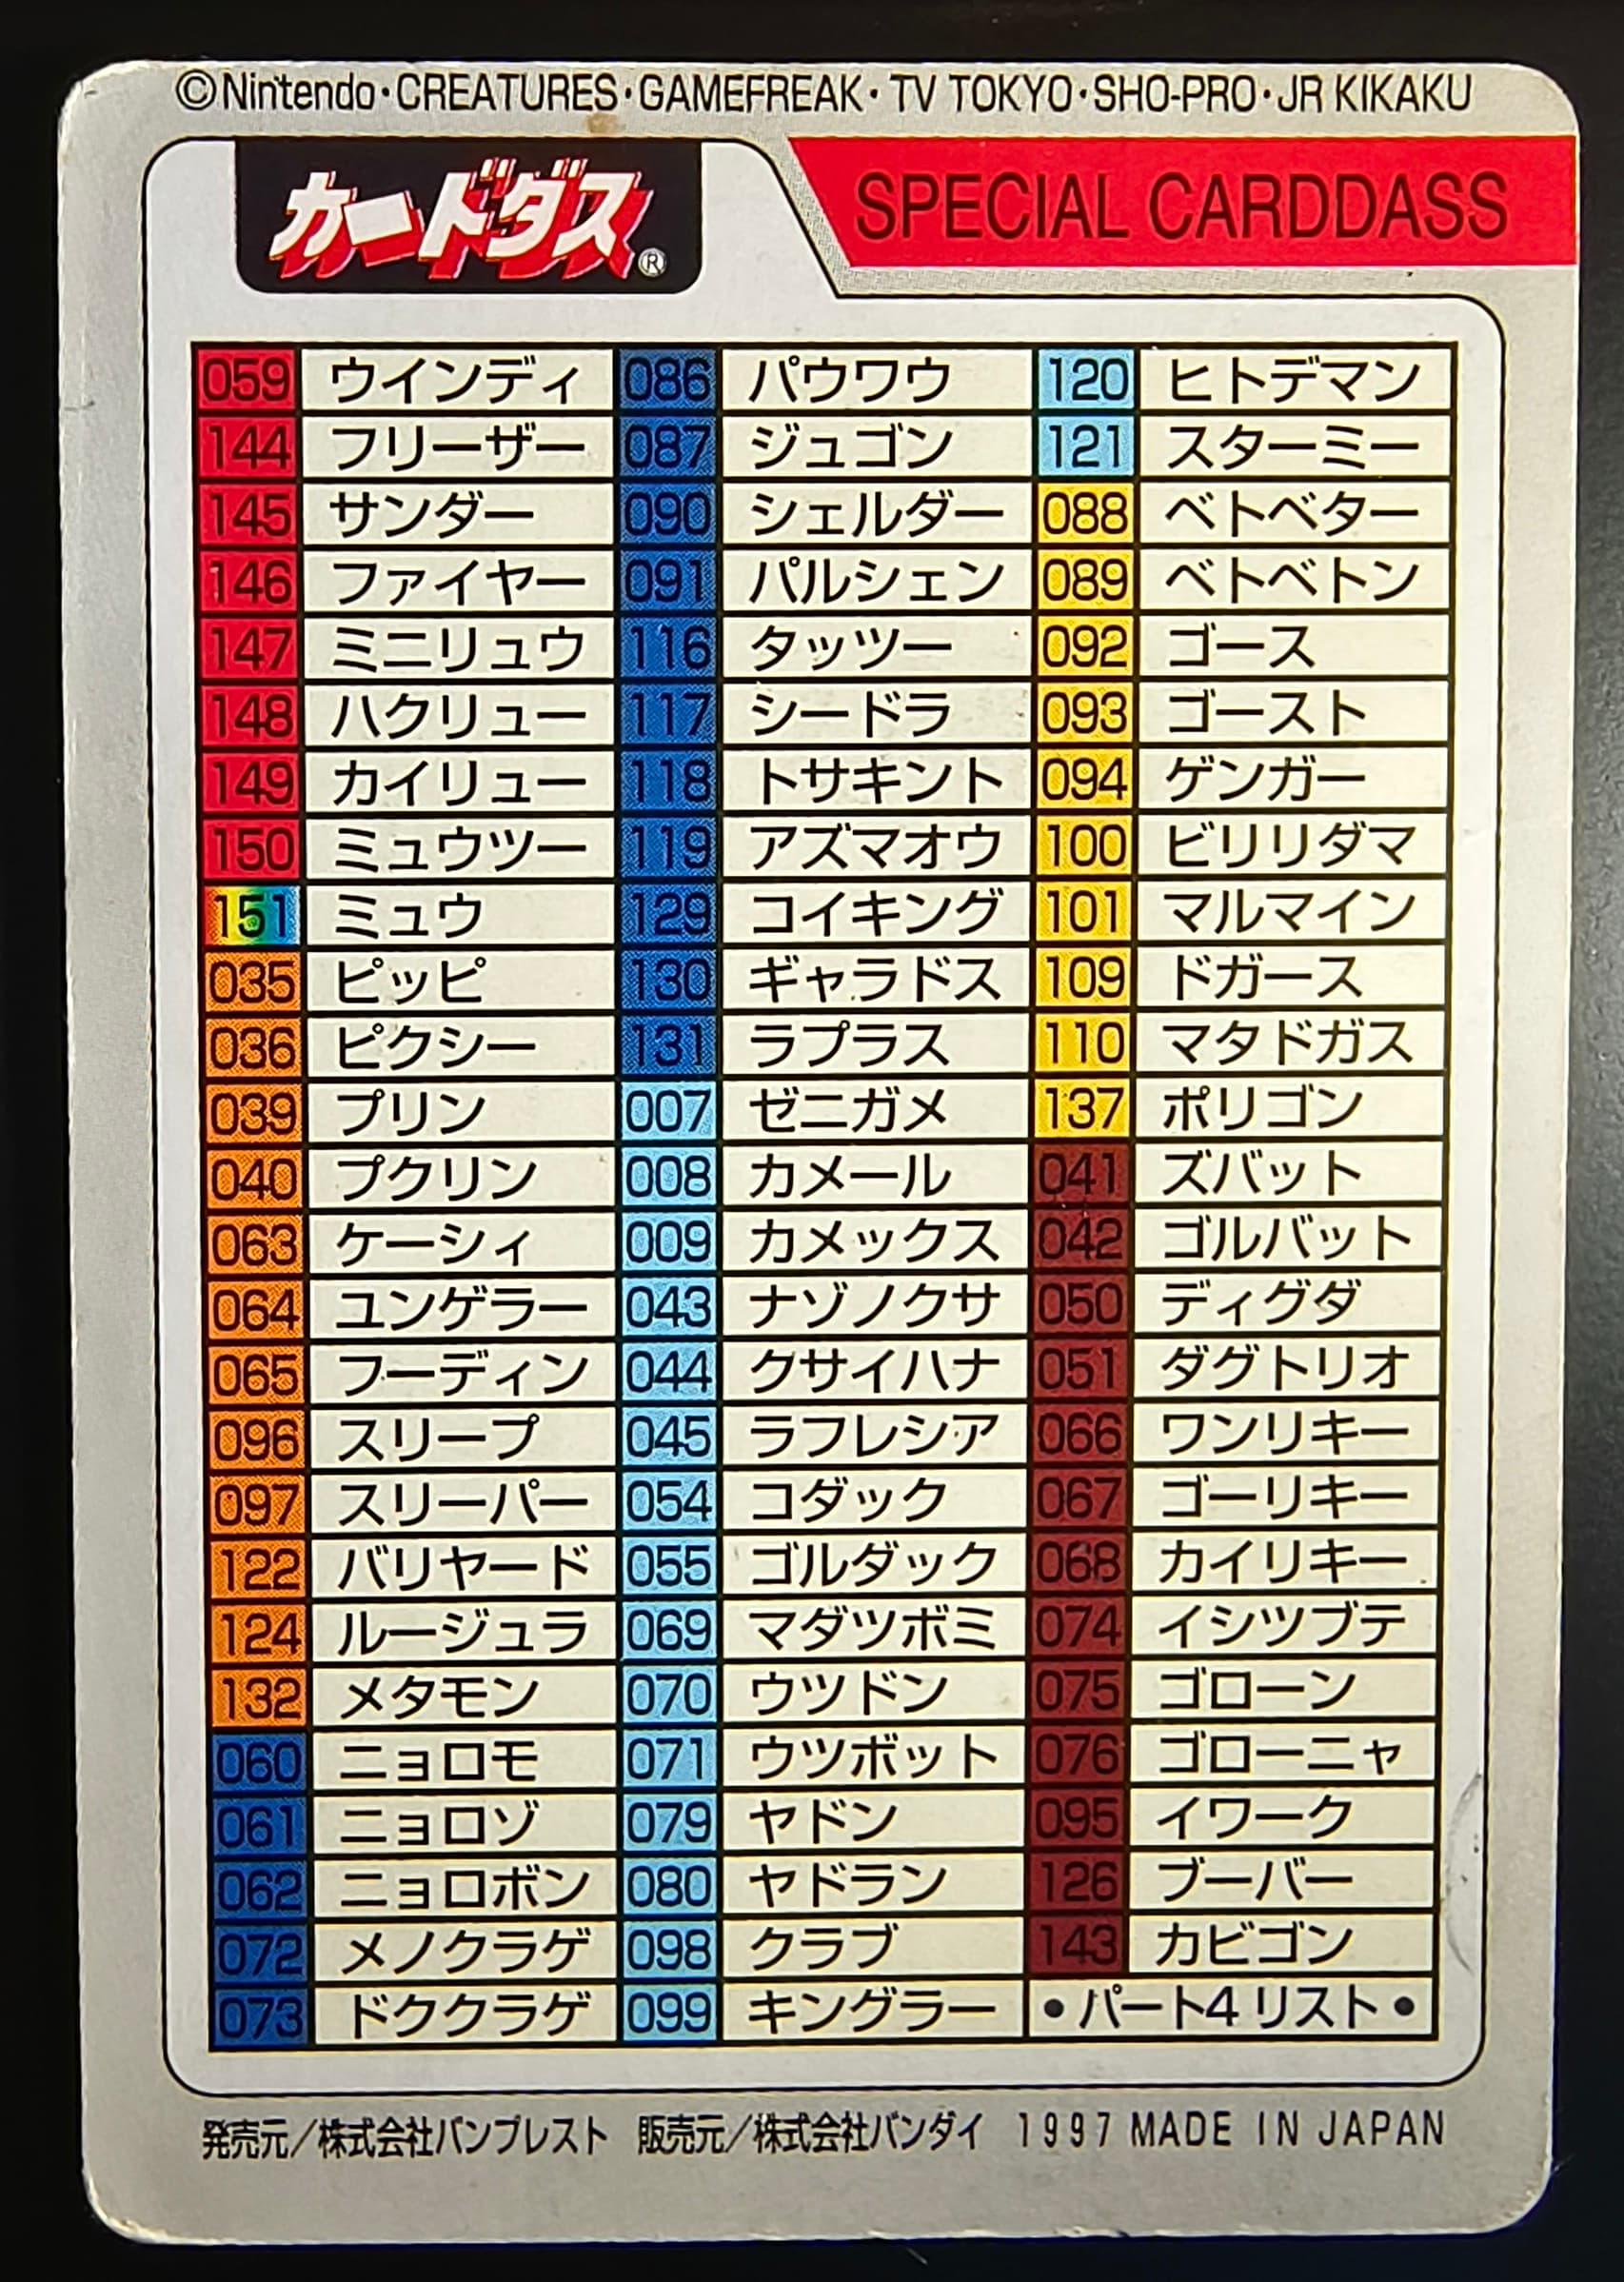 ©Nintendo・CREATURES・GAMEFREAK・TV TOKYO・SHO-PRO・JR KIKAKU
カードダス®
SPECIAL CARDDASS
059 ウインディ 086 パウワウ 120 ヒトデマン
144 フリーザー 087 ジュゴン 121 スターミー
145 サンダー 090 シェルダー 088 ベトベター
146 ファイヤー 091 パルシェン 089 ベトベトン
147 ミニリュウ 116 タッツー 092 ゴース
148 ハクリュー 117 シードラ 093 ゴースト
149 カイリュー 118 トサキント 094 ゲンガー
150 ミュウツー 119 アズマオウ 100 ビリリダマ
151 ミュウ 129 コイキング 101 マルマイン
035 ピッピ 130 ギャラドス 109 ドガース
036 ピクシー 131 ラプラス 110 マタドガス
039 プリン 007 ゼニガメ 137 ポリゴン
040 プクリン 008 カメール 041 ズバット
063 ケーシィ 009 カメックス 042 ゴルバット
064 ユンゲラー 043 ナゾノクサ 050 ディグダ
065 フーディン 044 クサイハナ 051 ダグトリオ
096 スリープ 045 ラフレシア 066 ワンリキー
097 スリーパー 054 コダック 067 ゴーリキー
122 バリヤード 055 ゴルダック 068 カイリキー
124 ルージュラ 069 マダツボミ 074 イシツブテ
132 メタモン 070 ウツドン 075 ゴローン
060 ニョロモ 071 ウツボット 076 ゴローニャ
061 ニョロゾ 079 ヤドン 095 イワーク
062 ニョロボン 080 ヤドラン 126 ブーバー
072 メノクラゲ 098 クラブ 143 カビゴン
073 ドククラゲ 099 キングラー ●パート4 リスト●
発売元／株式会社バンプレスト 販売元／株式会社バンダイ 1997 MADE IN JAPAN